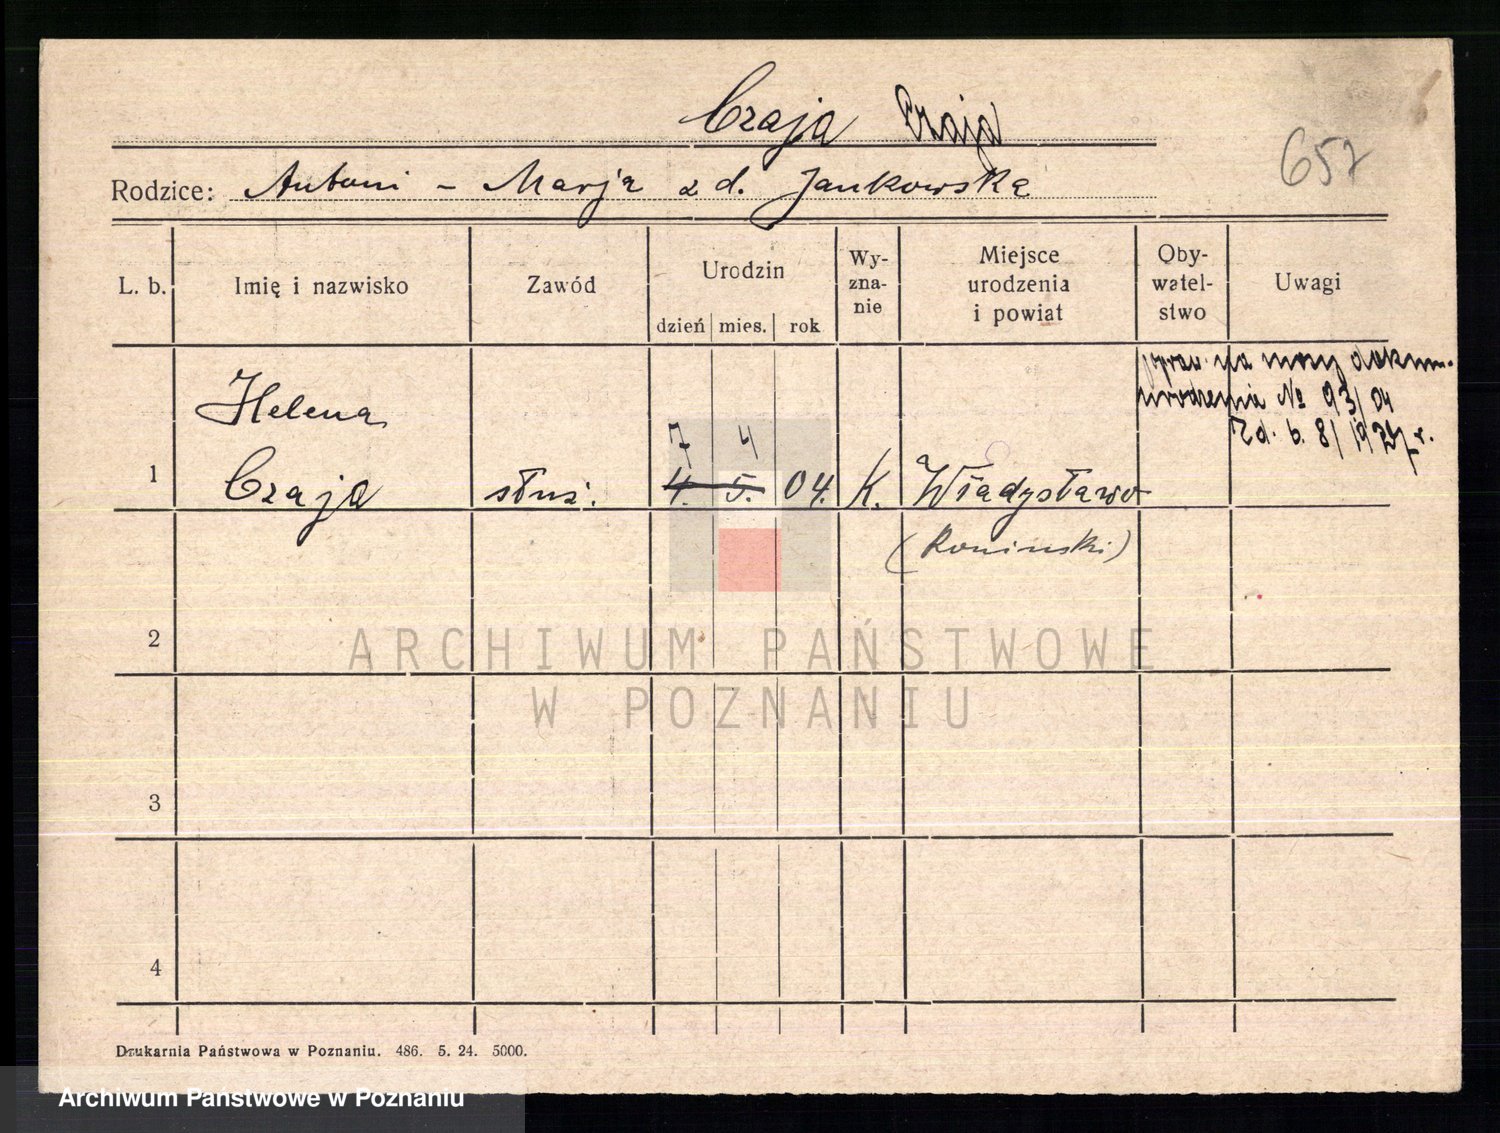 Czaja Czaja
657
Rodzice: Antoni – Marja z d. Jankowska
L. b.
Imię i nazwisko
Zawód
Urodzin
dzień mies. rok
Wy-
zna-
nie
Miejsce
urodzenia
i powiat
Oby-
watel-
stwo
Uwagi
na mocy dokum.
urodzenia № 93/04
Zd. b. 8/ 1927 r.
Helena
7 4
1 Czaja służ. 4. 5. 04. K. Władysławo
(Koninski)
2
3
4
ARCHIWUM PAŃSTWOWE
W POZNANIU
Drukarnia Państwowa w Poznaniu. 486. 5. 24. 5000.
Archiwum Państwowe w Poznaniu